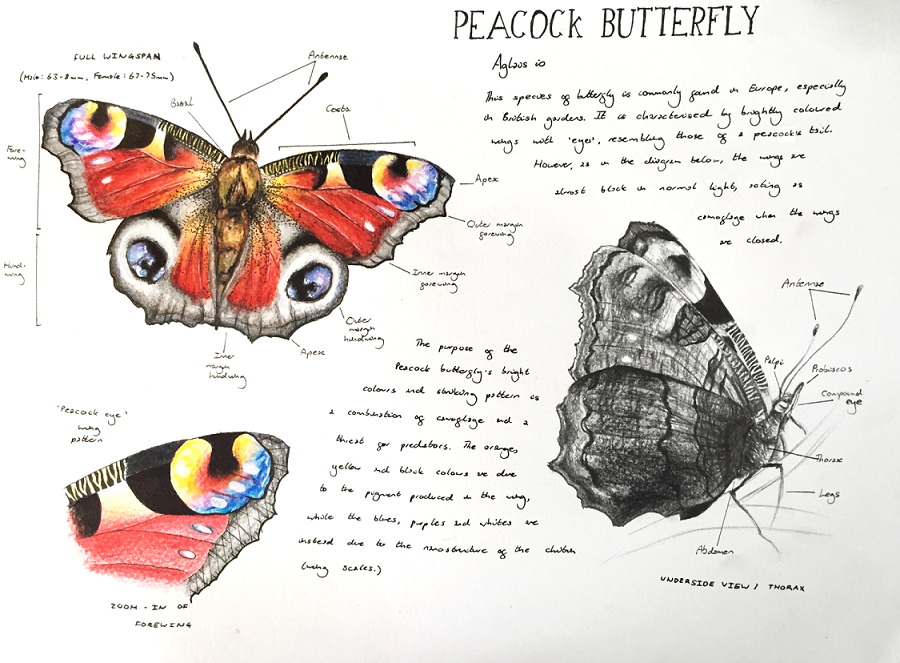 PEACOCK BUTTERFLY
Aglais io
FULL WINGSPAN
(Male: 63-8mm, Female: 67-75mm)
Antennae
Basal
Costa
Fore-
wing
Apex
Outer margin
forewing
Inner margin
forewing
Hind-
wing
Outer
margin
hindwing
Apex
Inner
margin
hindwing
This species of butterfly is commonly found in Europe, especially
in British gardens. It is characterised by brightly coloured
wings with 'eyes', resembling those of a peacock's tail.
However, as in the diagram below, the wings are
almost black in normal light, acting as
camoflage when the wings
are closed.
The purpose of the
Peacock butterfly's bright
colours and striking pattern is
a combination of camoflage and a
threat for predators. The oranges,
yellow and black colours are due
to the pigment produced in the wing,
while the blues, purples and whites are
instead due to the nanostructure of the chitin
(wing scales.)
'Peacock eye'
wing
pattern
ZOOM-IN OF
FOREWING
Antennae
Palpi
Proboscis
Compound
eye
Thorax
Legs
Abdomen
UNDERSIDE VIEW / THORAX